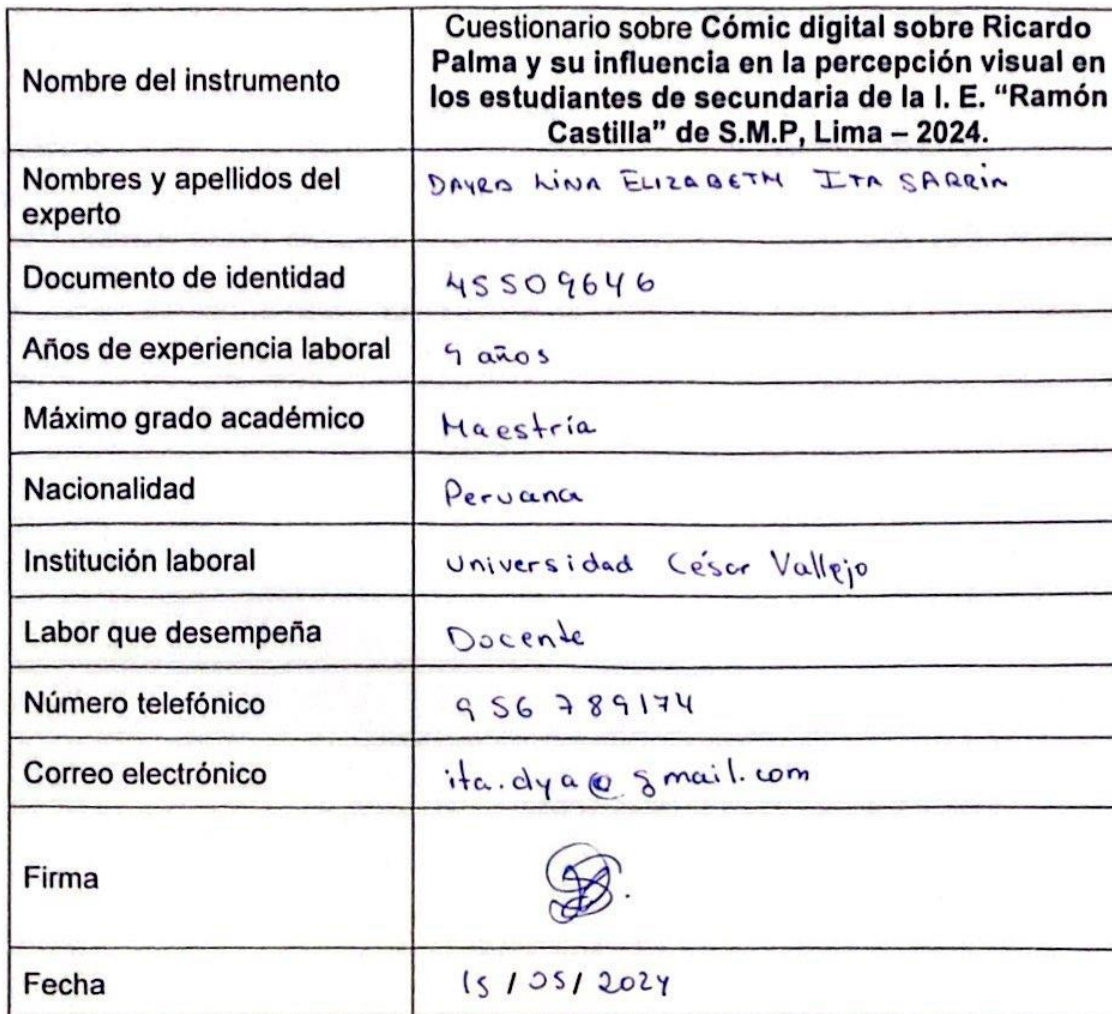 Nombre del instrumento
Cuestionario sobre Cómic digital sobre Ricardo
Palma y su influencia en la percepción visual en
los estudiantes de secundaria de la I. E. “Ramón
Castilla” de S.M.P, Lima – 2024.
Nombres y apellidos del
experto
DAYRA LINA ELIZABETH ITA SARRIN
Documento de identidad
45509646
Años de experiencia laboral
9 años
Máximo grado académico
Maestría
Nacionalidad
Peruana
Institución laboral
Universidad César Vallejo
Labor que desempeña
Docente
Número telefónico
956 789174
Correo electrónico
ita.dya@gmail.com
Firma
Fecha
15/05/2024